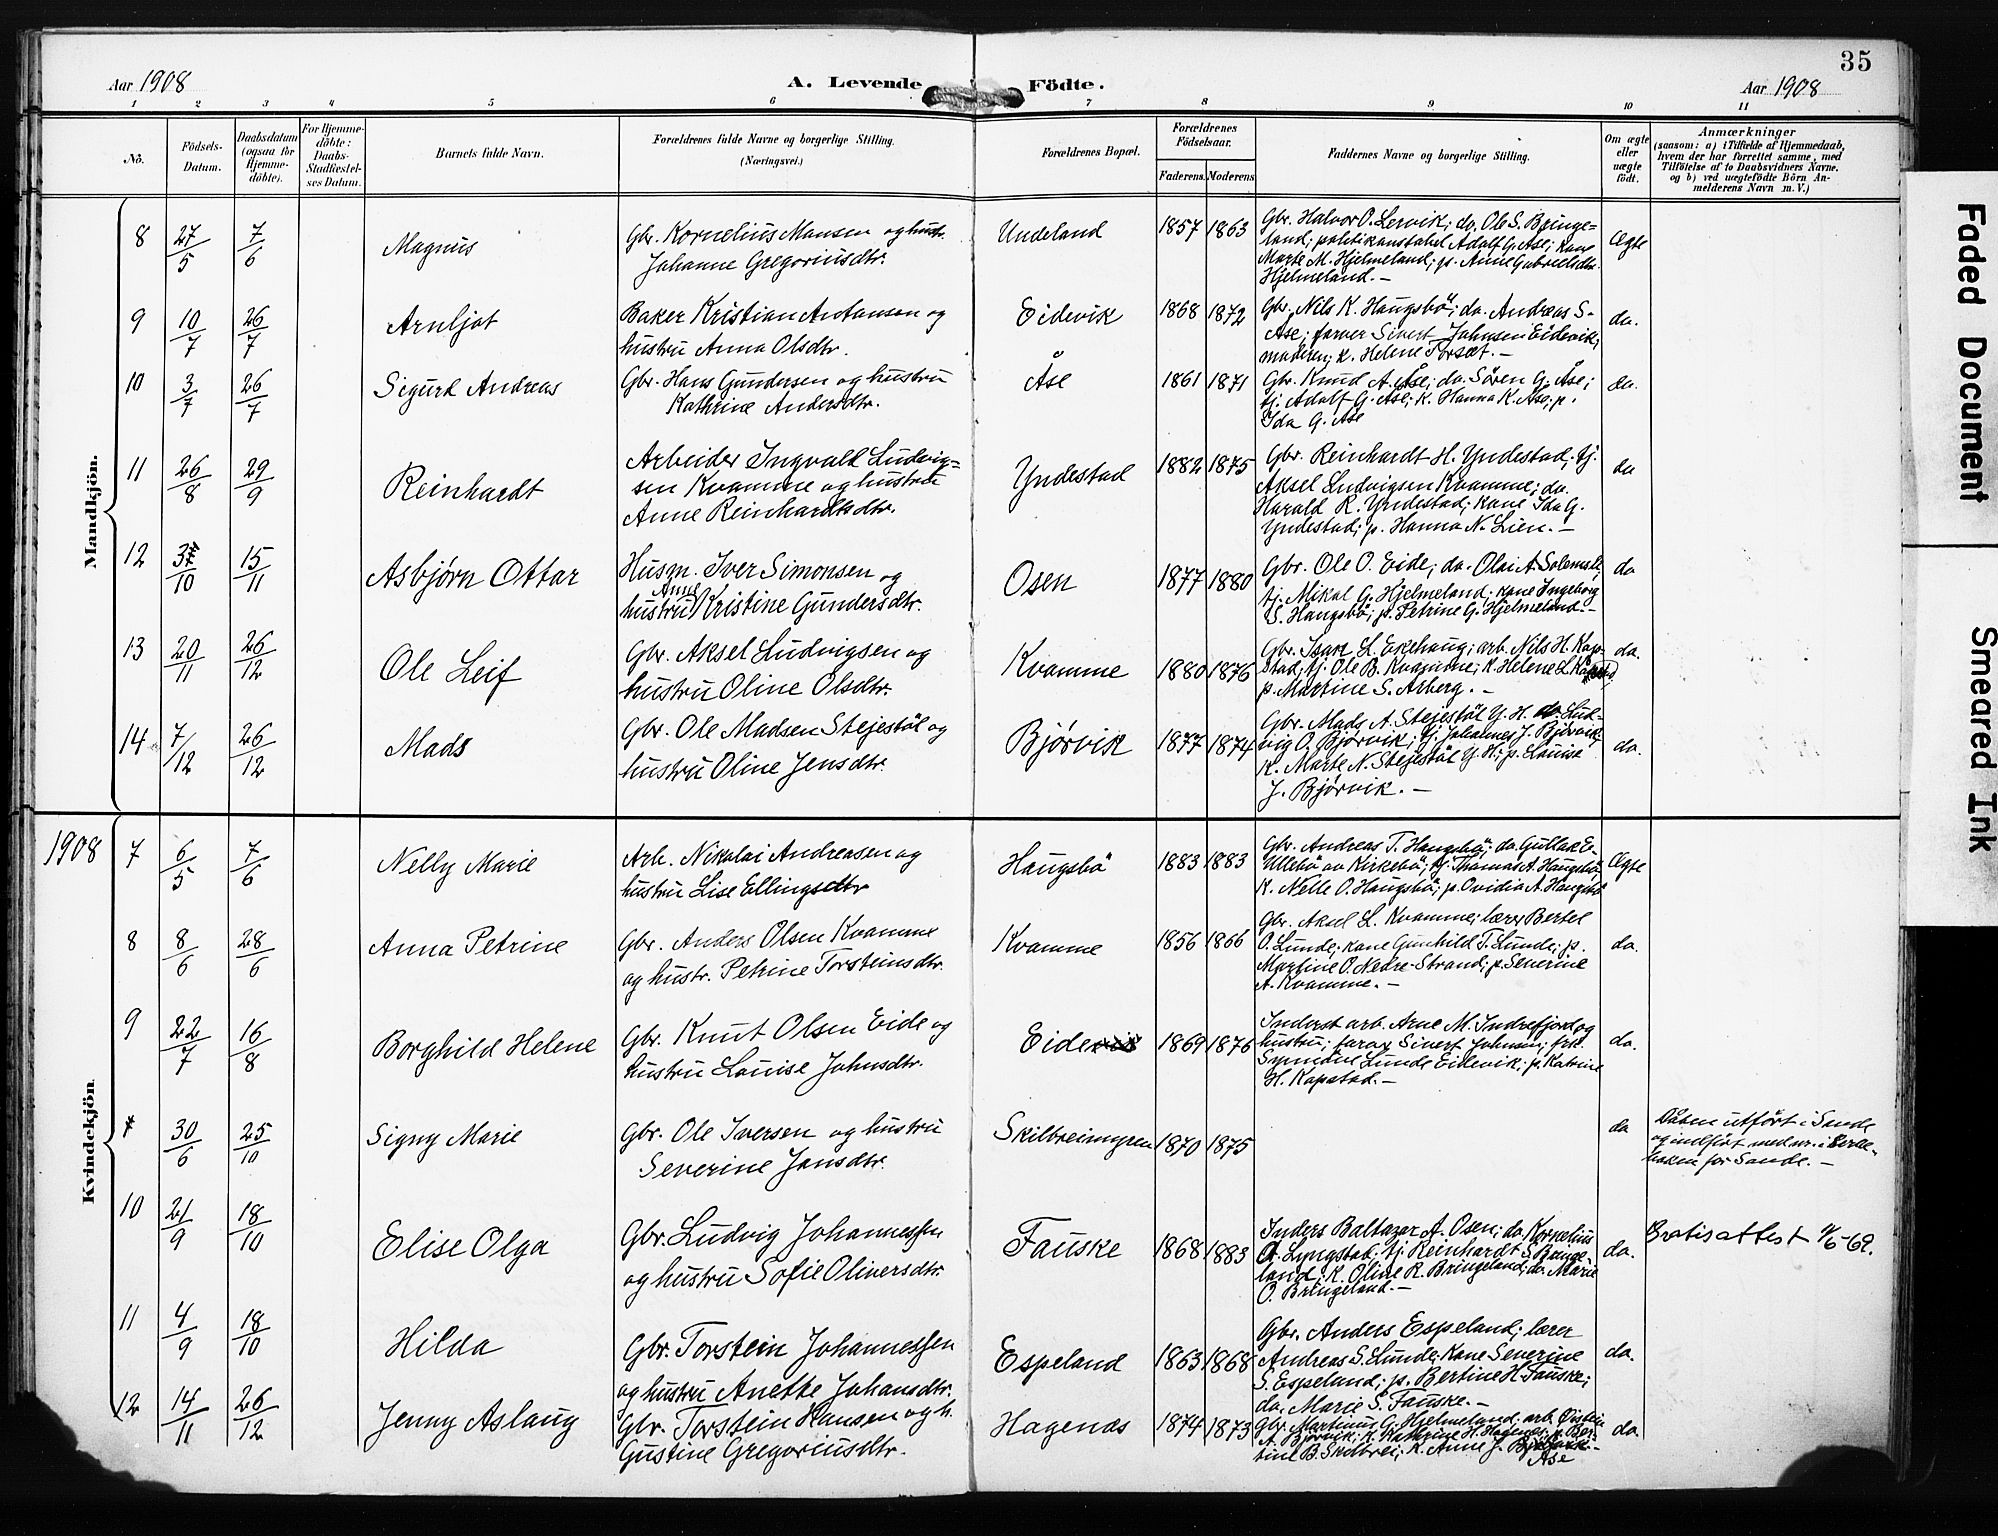 35
Aar 1908
A. Levende Födte.
Aar 1908
1 2 3 4 5 6 7 8 9 10 11
No.
Födsels-Datum.
Daabsdatum (ogsaa for Hjemme-döbte).
For Hjemme-döbte: Daabs-Stadfæstel-ses Datum.
Barnets fulde Navn.
Forældrenes fulde Navne og borgerlige Stilling. (Næringsvei.)
Forældrenes Bopæl.
Forældrenes Födselsaar.
Faderens. Moderens
Faddernes Navne og borgerlige Stilling.
Om ægte eller uægte födt.
Anmærkninger
(saasom: a) i Tilfælde af Hjemmedaab, hvem der har forrettet samme, med Tilföielse af to Daabsvidners Navne. og b) ved uægtefödte Börn An-melderens Navn m. V.)
Mandkjön.
8 27/5 7/6 Magnus
Gbr. Kornelius Monsen og hustr.
Johanne Gregoriusdtr.
Undeland 1857 1863
Gbr. Halvor O. Lervik; do. Ole S. Bringe-
land; politikonstabel Adolf G. Åse; kone
Marte M. Hjelmeland; p. Anne Gabrielsdtr.
Hjelmeland. —
Ægte
9 10/7 26/7 Arnljot
Baker Kristian Antonsen og
hustru Anna Olsdtr.
Eidevik 1868 1872
Gbr. Nils K. Haugsbö; do. Andreas S.
Åse; farver Sivert Johnsen Eidevik;
moderen; k. Helene Torset. —
do.
10 3/7 26/7 Sigurd Andreas
Gbr. Hans Gundersen og hustru
Kathrine Andersdtr.
Åse 1861 1871
Gbr. Knud A. Åse; do. Sören G. Åse;
tj. Adolf G. Åse; k. Hanna K. Åse; p.
Ida G. Åse
do.
11 26/8 29/9 Reinhardt
Arbeider Ingvald Ludvig=
sen Kvamme og hustru
Anne Reinhardtsdtr.
Yndestad 1882 1875
Gbr. Reinhardt H. Yndestad; tj.
Aksel Ludvigsen Kvamme; do.
Harald R. Yndestad; kone Ida G.
Yndestad; p. Hanna N. Lien. —
do
12 /10 15/11 Asbjørn Ottar
Husm. Iver Simonsen og
hustru Anne Kristine Gundersdtr.
Osen 1877 1880
Gbr. Ole O. Eide; do. Olai A. Solemsli;
tj. Mikal G. Hjelmeland; kone Ingeborg
S. Haugsbö; p. Petrine G. Hjelmeland. —
do
13 20/11 26/12 Ole Leif
Gbr. Aksel Ludvigsen og
hustru Oline Olsdtr.
Kvamme 1880 1876
Gbr. Isak L. Erkehaug; arb. Nils H. Kap-
stad; tj. Ole B. Kvamme; k. Helene L. Kapstad;
p. Martine S. Arberg. —
do.
14 7/12 26/12 Mads
Gbr. Ole Madsen Stejestöl og
hustru Oline Jensdtr.
Bjørvik 1877 1874
Gbr. Mads A. Stejestöl Y. H. do. Lud-
vig O. Bjørvik; tj. Johannes J. Bjørvik,
k. Marte N. Stejestöl Y. H; p. Lovise
J. Bjørvik. —
do.
1908
Kvindekjön.
7 6/5 7/6 Nelly Marie
Arb. Nikolai Andreasen og
hustru Lise Ellingsdtr
Haugsbö 1883 1883
Gbr. Andreas T. Haugsbö; do. Gullak E.
Ullebö av Kirkebö; tj. Thomas A. Haugsbö,
k. Nelle O. Haugsbö; p. Ovidia A. Haugsbö
Ægte
8 8/6 28/6 Anna Petrine
Gbr. Anders Olsen Kvamme
og hustr. Petrine Torsteinsdtr.
Kvamme 1856 1866
Gbr. Aksel L. Kvamme; lærer Bertel
O. Lunde; kone Gunhild T. Lunde; p.
Martine O. Nedre-Strand; p. Severine
A. Kvamme. —
do.
9 22/7 16/8 Borghild Helene
Gbr. Knut Olsen Eide og
hustru Louise Johnsdtr.
Eide 1869 1876
Inderst arb. Arne M. Indrefjord og
hustru; farver Sivert Johnsen; frk.
Synnöve Lunde Eidevik; p. Katrine
H. Kapstad. —
do.
* 30/6 25/10 Signy Marie
Gbr. Ole Iversen og hustru
Severine Jonsdtr.
Skilbreimyren 1870 1875
do
Dåben utfört i Sande
og indfört med nr. i kirke-
boken for Sande. —
10 21/9 18/10 Elise Olga
Gbr. Ludvig Johannessen
og hustru Sofie Oliversdtr.
Fauske 1868 1883
Inders Baltazar A. Osen; do. Kornelius
A. Lyngstad; tj. Reinhardt S. Bringe-
land; k. Oline R. Bringeland; do. Marie
O. Bringeland. —
do.
Gratisattest 4/6-62.
11 4/9 18/10 Hilda
Gbr. Torstein Johannessen
og hustru Anette Johansdtr.
Espeland 1863 1868
Gbr. Anders Espeland; lærer
Andreas S. Lunde; kone Severine
S. Espeland; p. Bertine H. Fauske;
do. Marie S. Fauske. —
do.
12 14/11 26/12 Jenny Aslaug
Gbr. Torstein Hansen og h.
Gustine Gregoriusdtr.
Hagenæs 1874 1873
Gbr. Martinus G. Hjelmeland; arb. Öistein
A. Bjørvik; k. Kathrine H. Hagenes; p. Ber-
tine B. Skilbrei; k. Anne J.
Åse
do
Faded Document
Smeared Ink